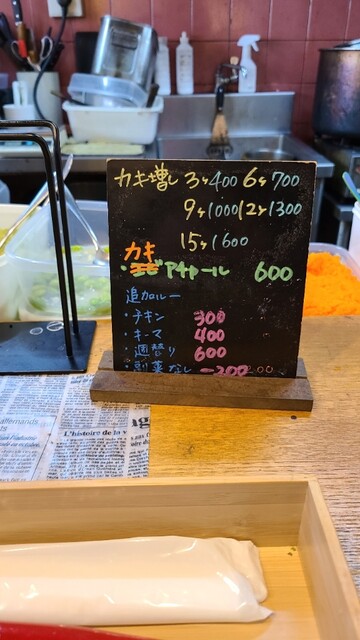 カキ増し 3ケ400 6ケ700
9ケ1000 12ケ1300
15ケ1600
カキ
・アチャール 600
追加ルー
・チキン 300
・キーマ 400
・週替り 600
・副菜なし -200
allemands
L'histoire de la v